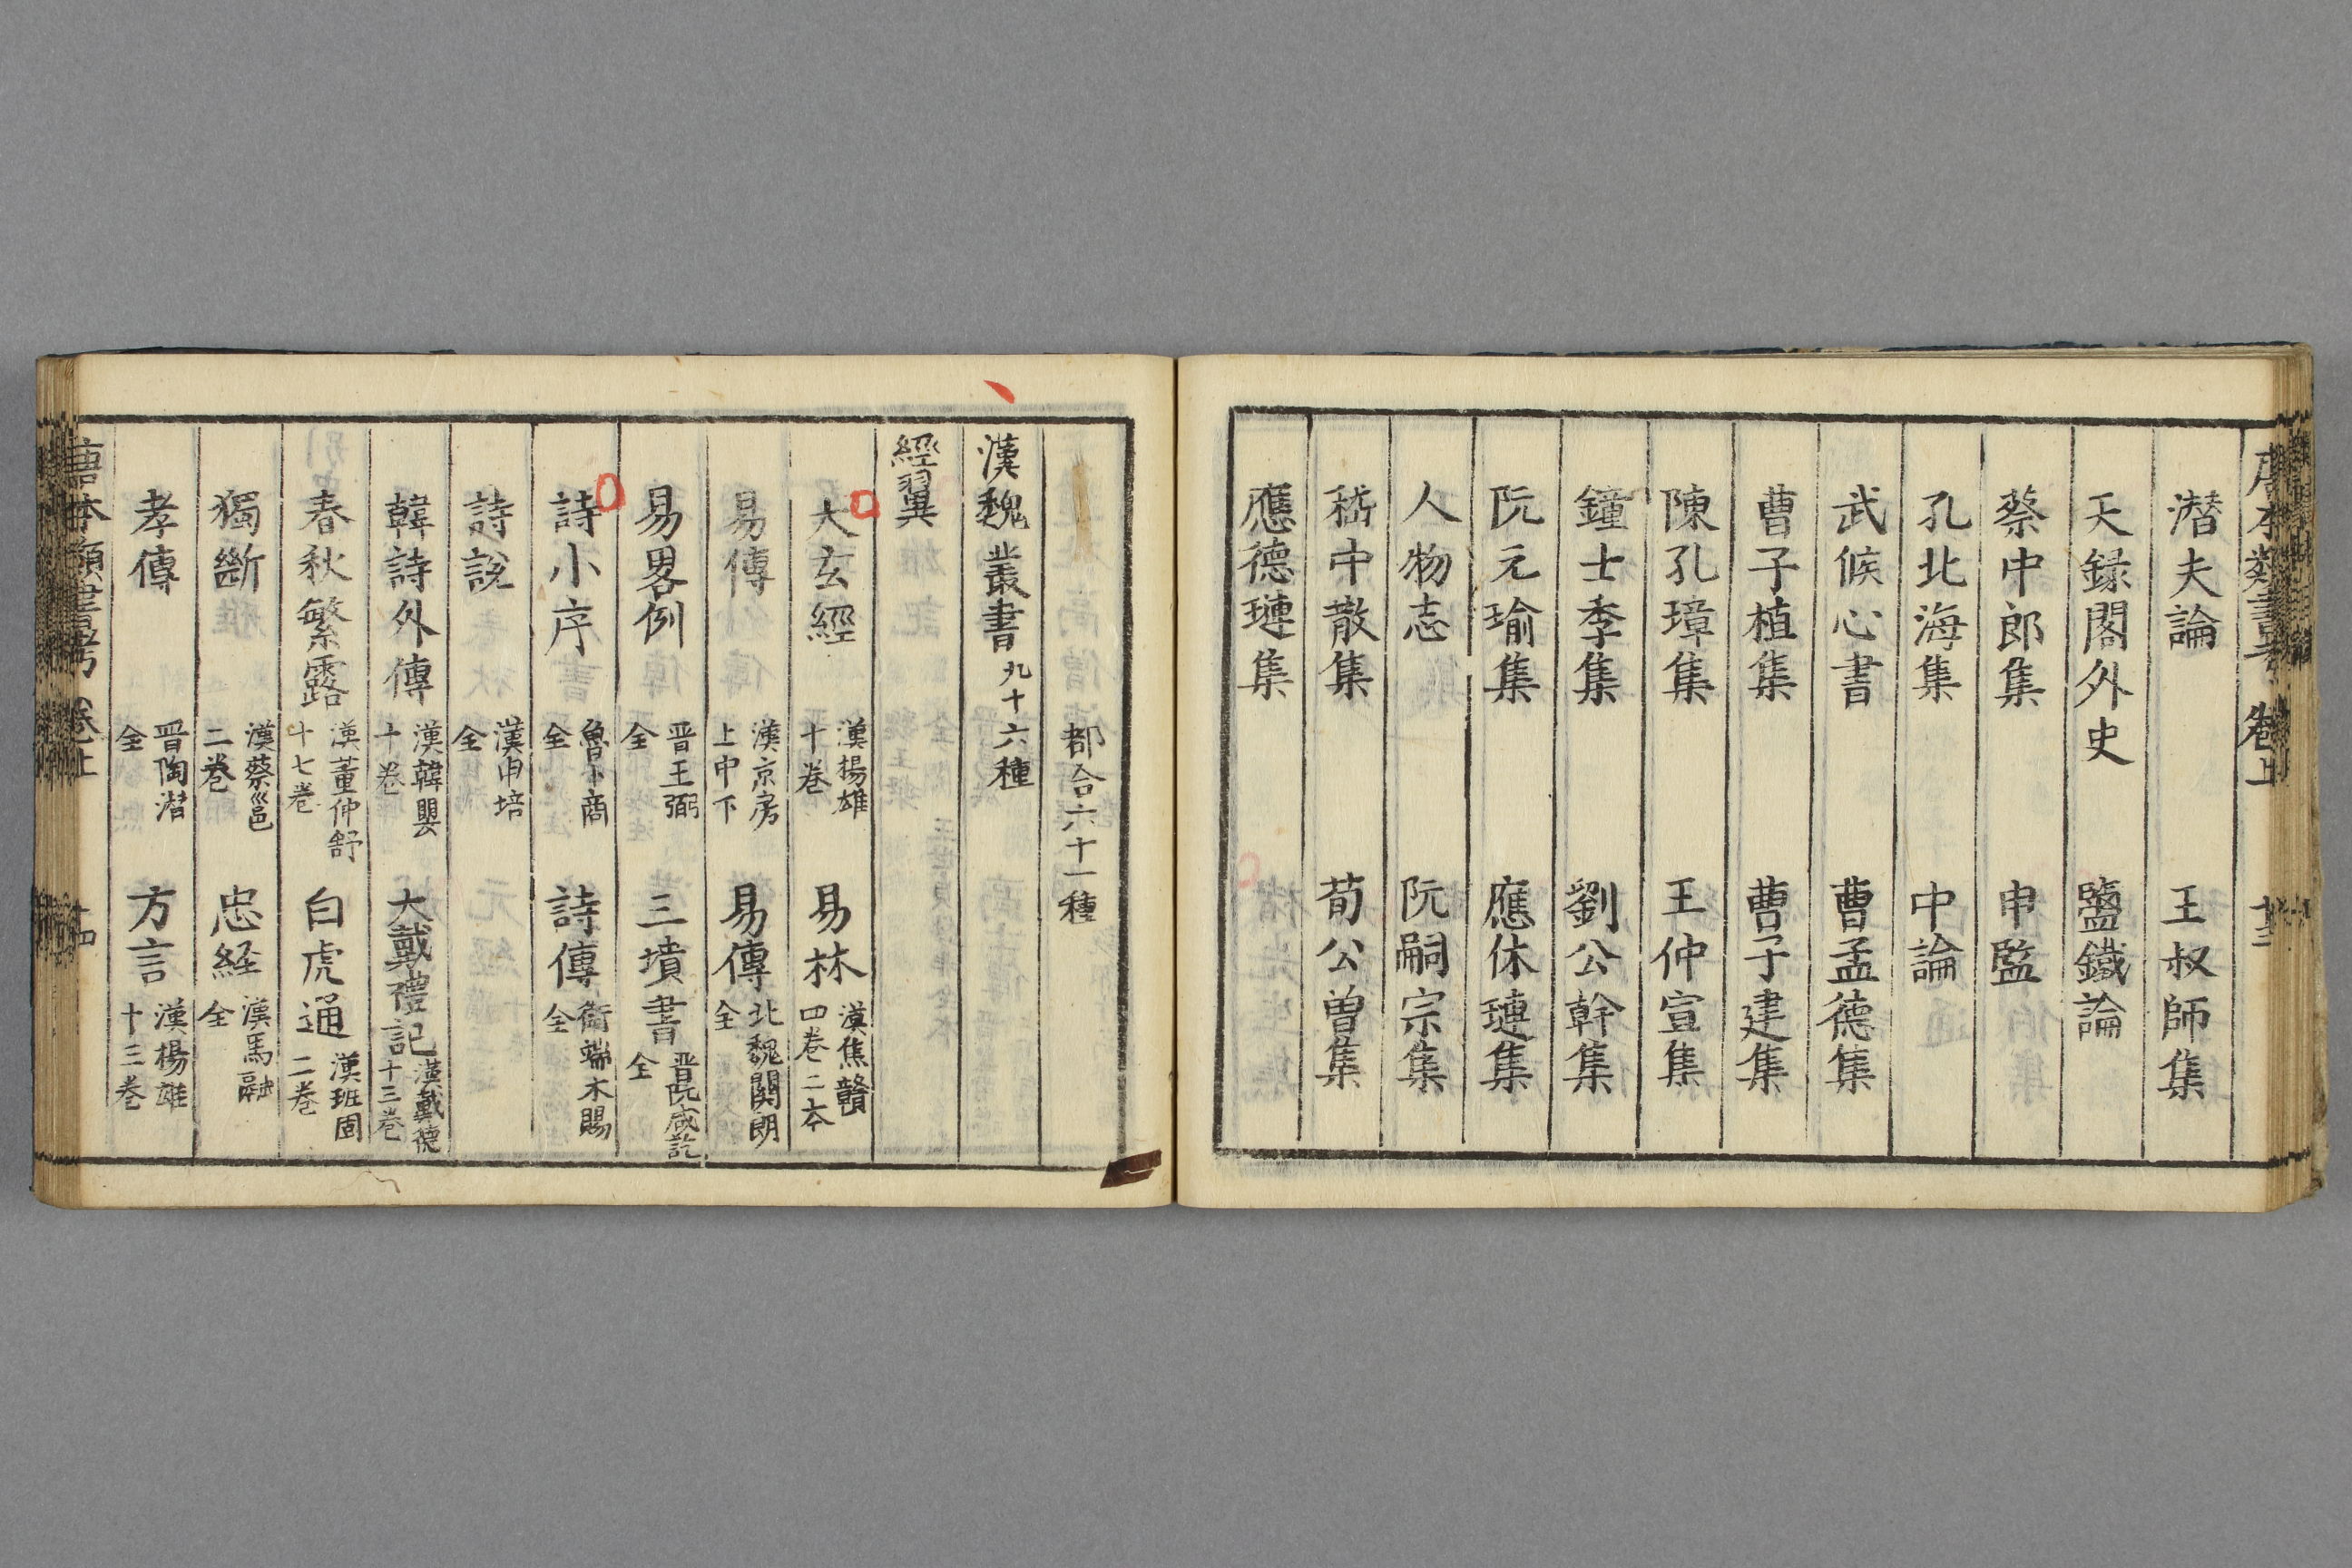 唐本類書考 卷上 十三
潜夫論 王叔師集
天録閣外史 鹽鐵論
蔡中郎集 申監
孔北海集 中論
武候心書 曹孟德集
曹子植集 曹子建集
陳孔璋集 王仲宣集
鐘士季集 劉公幹集
阮元瑜集 應休璉集
人物志 阮嗣宗集
嵇中散集 荀公曽集
應德璉集
都合六十一種
漢魏叢書 九十六種
經翼
大玄經 漢揚雄 十卷 易林 漢焦贛 四卷二本
易傳 漢京房 上中下 易傳 北魏関朗 全
易畧例 晋王弼 全 三墳書 晋阮咸註 全
詩小序 魯卜商 全 詩傳 衛端木賜 全
詩説 漢申培 全
韓詩外傳 漢韓嬰 十卷 大戴禮記 漢戴德 十三卷
春秋繁露 漢董仲舒 十七卷 白虎通 漢班固 二卷
獨斷 漢蔡邕 二卷 忠経 漢馬融 全
孝傳 晋陶潜 全 方言 漢楊雄 十三卷
唐本類書考 卷上 十四